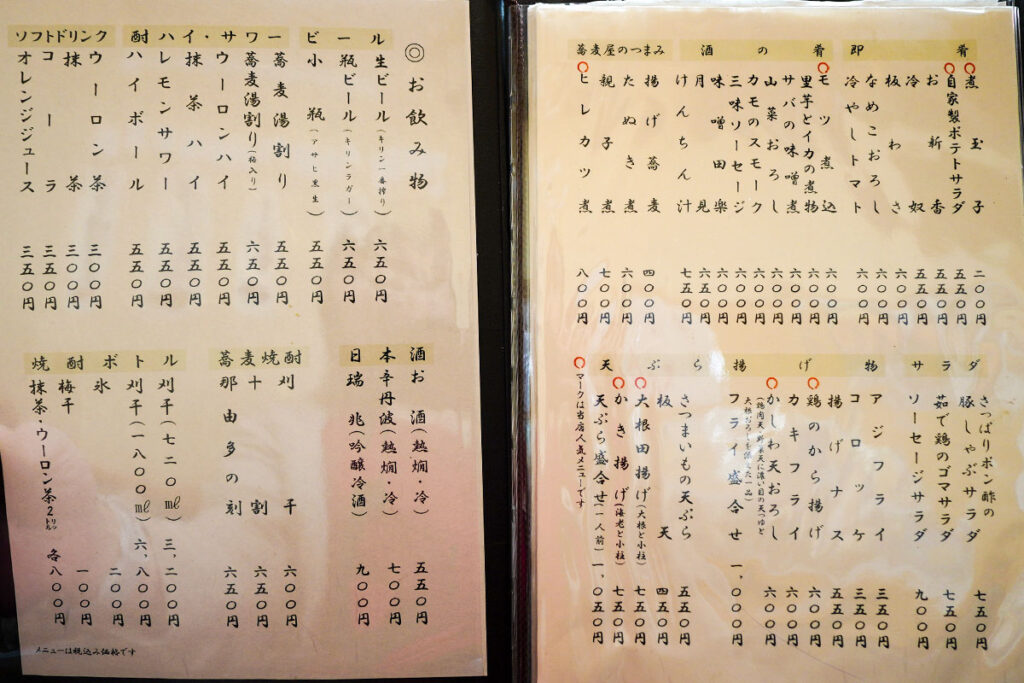 即肴
煮玉子 二〇〇円
自家製ポテトサラダ 五五〇円
お新香 五五〇円
冷奴 五五〇円
板わさ 六〇〇円
なめこおろし 六〇〇円
冷やしトマト 六〇〇円
酒の肴
モツ煮込 六〇〇円
里芋とイカの煮物 六〇〇円
サバの味噌煮 六〇〇円
山菜おろし 六〇〇円
カモのスモーク 六〇〇円
三味ソーセージ 六〇〇円
味噌田楽 六〇〇円
月見 六五〇円
けんちん汁 七五〇円
蕎麦屋のつまみ
揚げ蕎麦 四〇〇円
たぬき煮 六〇〇円
親子煮 七〇〇円
ヒレカツ煮 八〇〇円
サラダ
さっぱりポン酢の
豚しゃぶサラダ 七五〇円
茹で鶏のゴマサラダ 七五〇円
ソーセージサラダ 九〇〇円
天ぷら揚げ物
アジフライ 三五〇円
コロッケ 三五〇円
揚げナス 五五〇円
鶏のから揚げ 六〇〇円
カキフライ 六〇〇円
かしわ天おろし 六〇〇円
(鶏肉天、野菜天に濃い目の天つゆと
大根おろしを添えた一品)
フライ盛合せ 一、〇〇〇円
さつまいもの天ぷら 五五〇円
板天 四五〇円
大根田揚げ(大根と小柱) 七五〇円
かき揚げ(海老と小柱) 七五〇円
天ぷら盛合せ(一人前) 一、〇五〇円
マークは当店人気メニューです
◎お飲み物
ビール
生ビール(キリン一番搾り) 六五〇円
瓶ビール(キリンラガー) 六五〇円
小瓶(アサヒ黒生) 五五〇円
酎ハイ・サワー
蕎麦湯割り 五五〇円
蕎麦湯割り(梅入り) 六五〇円
ウーロンハイ 五五〇円
抹茶ハイ 五五〇円
レモンサワー 五五〇円
ハイボール 五五〇円
ソフトドリンク
ウーロン茶 三〇〇円
抹茶 三〇〇円
コーラ 三五〇円
オレンジジュース 三五〇円
日本酒
お酒(熱燗・冷) 五五〇円
辛丹波(熱燗・冷) 七〇〇円
瑞兆(吟醸冷酒) 九〇〇円
蕎麦焼酎
刈干 六〇〇円
十割 六五〇円
那由多の刻 六五〇円
焼酎ボトル
刈干(七二〇㎖) 三、二〇〇円
刈干(一八〇〇㎖) 六、八〇〇円
氷 二〇〇円
梅干 一〇〇円
抹茶・ウーロン茶2リットル 各八〇〇円
メニューは税込み価格です